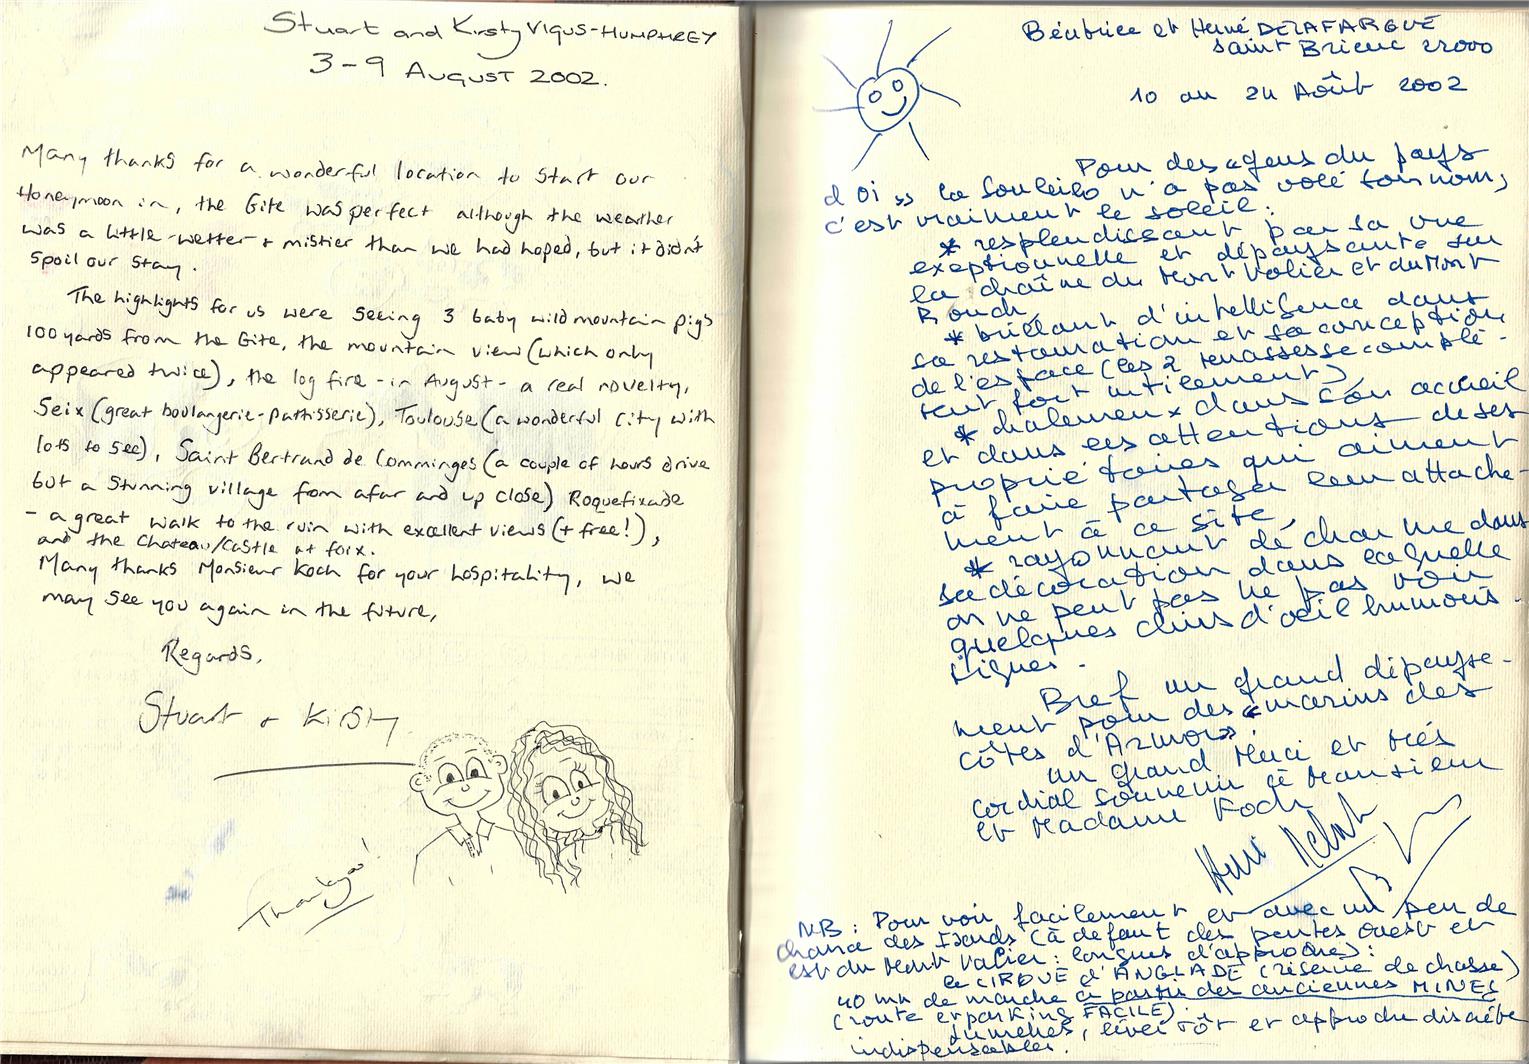 Stuart and Kirsty VIGUS-HUMPHREY
3-9 AUGUST 2002.
Many thanks for a wonderful location to start our
Honeymoon in, the Gite was perfect although the weather
was a little wetter + mistier than we had hoped, but it didn't
spoil our stay.
The highlights for us were seeing 3 baby wild mountain pigs
100 yards from the Gite, the mountain view (which only
appeared twice), the log fire - in August - a real novelty,
Seix (great boulangerie-pattisserie), Toulouse (a wonderful city with
lots to see), Saint Bertrand de Comminges (a couple of hours drive
but a stunning village from afar and up close) Roquefixade
- a great walk to the ruin with excellent views (+ free!),
and the Chateau/Castle at foix.
Many thanks Monsieur Koch for your hospitality, we
may see you again in the future,
Regards,
Stuart + Kirsty.
Thankyou!
Béatrice et Hervé DELAFARGUE
Saint Brieuc 22000
10 au 24 Août 2002
Pour des «gens du pays
d'oi» la Souleilo n'a pas volé son nom,
c'est vraiment le soleil:
* resplendissant par sa vue
exeptionnelle et dépaysante sur
la chaîne du Mont Valier et du Mont
Rouch,
* brillant d'intelligence dans
sa restauration et sa conception
de l'espace (les 2 terrasses se complè-
tent fort utilement),
* chaleureux dans son accueil
et dans les attentions de ses
propriétaires qui aiment
à faire partager leur attache-
ment à ce site,
* rayonnant de charme dans
sa décoration dans laquelle
on ne peut pas ne pas voir
quelques clins d'oeil humoris-
tiques.
Bref un grand dépayse-
ment pour des «marins des
côtes d'Armor».
un grand Merci et très
cordial souvenir à Monsieur
et Madame Koch
NB: Pour voir facilement et avec un peu de
chance des Isards (à défaut des pentes ouest et
est du Mont Valier: longues d'approche):
le CIRQUE d'ANGLADE (réserve de chasse)
40 mn de marche à partir des anciennes MINES
(route et parking FACILE).
Jumelles, lever tôt et approche discrète
indispensables.